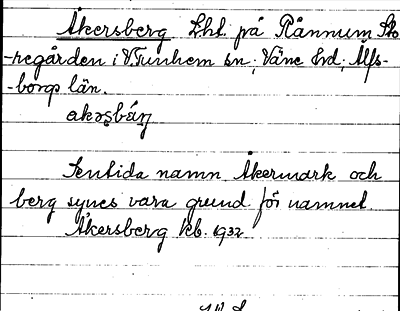 Åkersberg Lhl. på Rånnum Sto
-regården i V Tunhem sn, Väne hd, Älfs-
-borgs län.
akəsbärj
Sentida namn. Åkermark och
berg synes vara grund för namnet.
Åkersberg kb. 1932